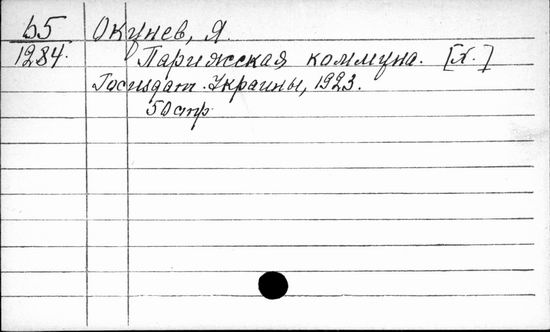 Б5 Окунев, Я.
1284. Парижская коммуна. [Х.]
Госиздат. Украины, 1923.
50 стр